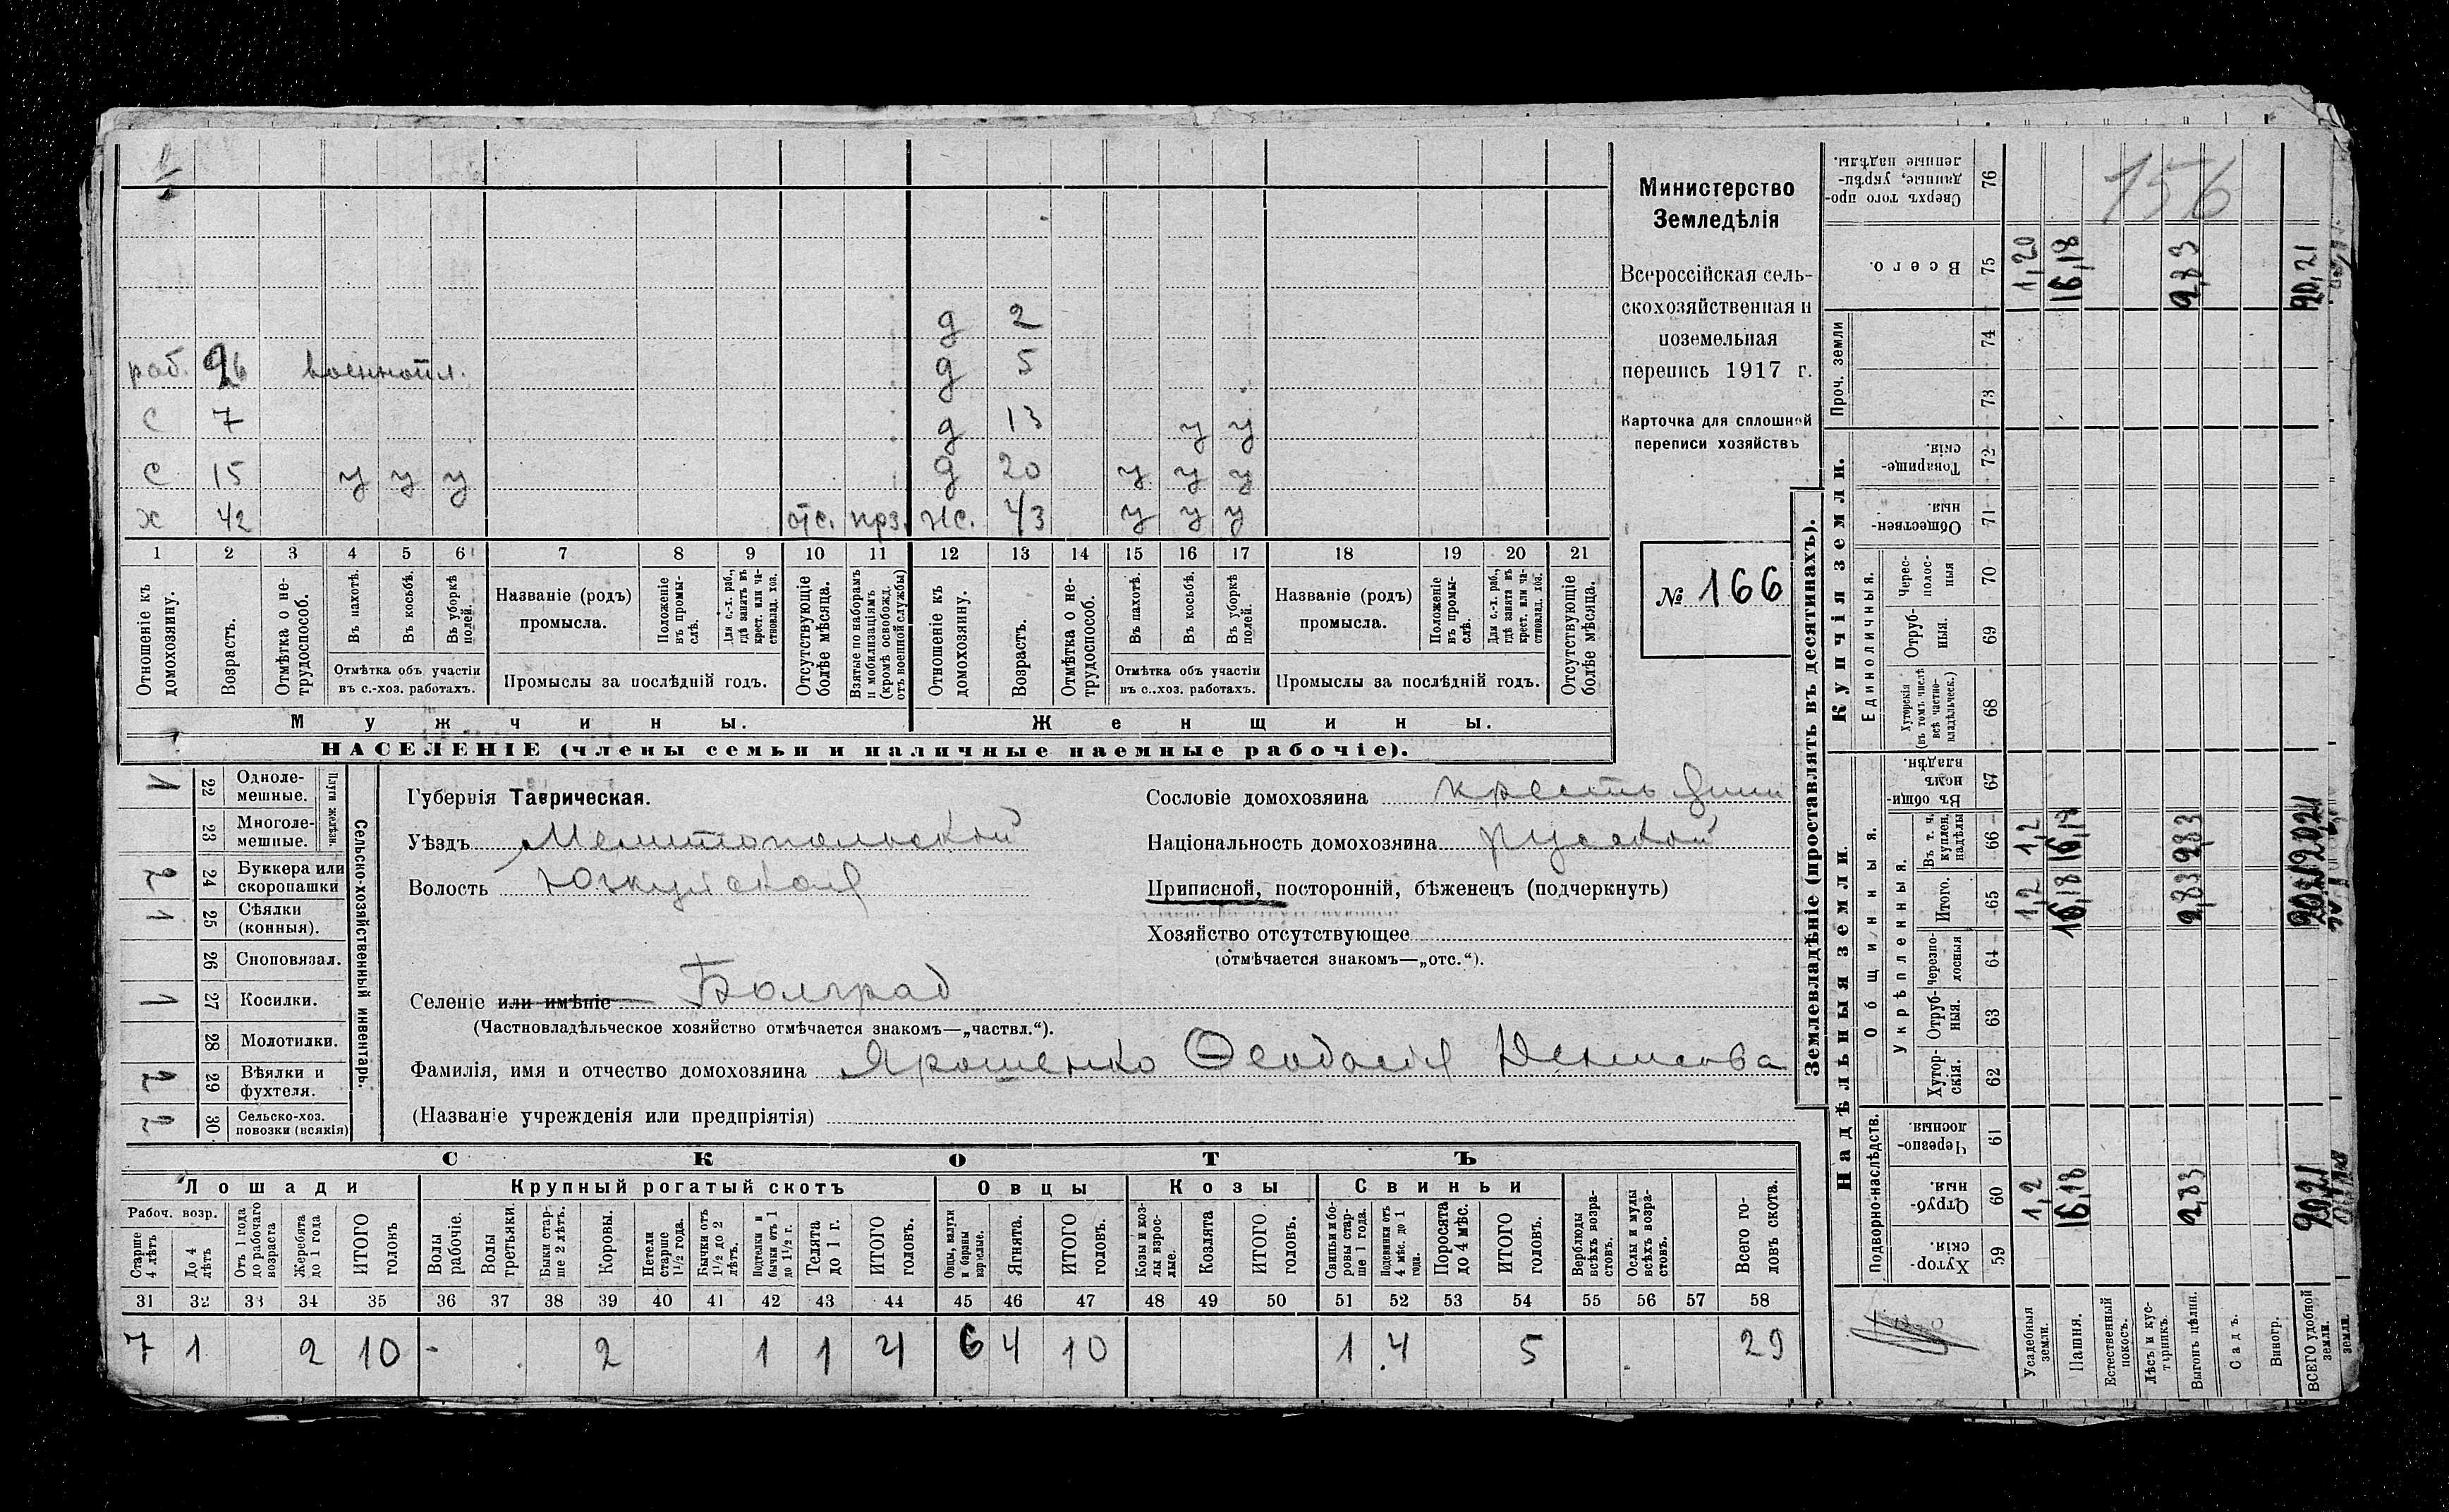 д 2
раб. 26 военнопл. д 5
с 7 д 13 у у
с 15 у у у д 20 у у у
х 42 отс. прз. ж. 43 у у у
1 2 3 4 5 6 7 8 9 10 11 12 13 14 15 16 17 18 19 20 21
Отношеніе къ домохозяину.
Возрастъ.
Отмѣтка о не-
трудоспособ.
Въ пахотѣ.
Въ косьбѣ.
Въ уборкѣ
полей.
Отмѣтка объ участіи
въ с.-хоз. работахъ.
Названіе (родъ)
промысла.
Положеніе
въ промы-
слѣ.
Для с.-х. раб.,
гдѣ занятъ въ
крест. или ча-
стновлад. хоз.
Промыслы за послѣдній годъ.
Отсутствующіе
болѣе мѣсяца.
Взятые по наборамъ
и мобилизаціямъ
(кромѣ освобожд.
отъ военной службы)
Отношеніе къ
домохозяину.
Возрастъ.
Отмѣтка о не-
трудоспособ.
Въ пахотѣ.
Въ косьбѣ.
Въ уборкѣ
полей.
Отмѣтка объ участіи
въ с..хоз. работахъ.
Названіе (родъ)
промысла.
Положеніе
въ промы-
слѣ.
Для с.-х. раб.,
гдѣ занята въ
крест. или ча-
стновлад. хоз.
Промыслы за послѣдній годъ.
Отсутствующіе
болѣе мѣсяца.
Мужчины. Женщины.
НАСЕЛЕНІЕ (члены семьи и наличные наемные рабочіе).
Министерство
Земледѣлія
Всероссійская сель-
скохозяйственная и
поземельная
перепись 1917 г.
Карточка для сплошной
переписи хозяйствъ
№ 166
1 22 Одноле-
мешные.
23 Многоле-
мешные.
Плуги желѣзн.
2 24 Буккера или
скоропашки
1 25 Сѣялки
(конныя).
26 Сноповязал.
1 27 Косилки.
28 Молотилки.
2 29 Вѣялки и
фухтеля.
2 30 Сельско-хоз.
повозки (всякія)
Сельско-хозяйственный инвентарь.
Губернія Таврическая.
Уѣздъ Мелитопольской
Волость Юзкуйской
Селеніе или имѣніе Болград
(Частновладѣльческое хозяйство отмѣчается знакомъ—„частвл.“).
Фамилія, имя и отчество домохозяина Ярошенко Ѳеодосій Денисова
(Названіе учрежденія или предпріятія)
Сословіе домохозяина крестьянин
Національность домохозяина русской
Приписной, посторонній, бѣженецъ (подчеркнуть)
Хозяйство отсутствующее
(отмѣчается знакомъ—„отс.“).
СКОТЪ
Лошади Крупный рогатый скотъ Овцы Козы Свиньи
Рабоч. возр.
Старше
4 лѣтъ
До 4
лѣтъ
Отъ 1 года
до рабочаго
возраста
Жеребята
до 1 года
ИТОГО
головъ
Волы
рабочіе.
Волы
третьяки.
Быки стар-
ше 2 лѣтъ.
Коровы.
Нетели
старше
1½ года.
Бычки отъ
1½ до 2
лѣтъ.
Подтелки и
бычки отъ 1
до 1½ г.
Телята
до 1 г.
ИТОГО
головъ.
Овцы, валухи
и бараны
взрослые.
Ягнята.
ИТОГО
головъ.
Козы и коз-
лы взрос-
лые.
Козлята
ИТОГО
головъ.
Свиньи и бо-
ровы стар-
ше 1 года.
Подсвинки отъ
4 мѣс. до 1
года.
Поросята
до 4 мѣс.
ИТОГО
головъ.
Верблюды
всѣхъ возра-
стовъ.
Ослы и мулы
всѣхъ возра-
стовъ.
Всего го-
ловъ скота.
31 32 33 34 35 36 37 38 39 40 41 42 43 44 45 46 47 48 49 50 51 52 53 54 55 56 57 58
7 1 2 10 - 2 1 1 4 6 4 10 1 4 5 29
Землевладѣніе (проставлять въ десятинахъ).
Надѣльныя земли. Купчія земли. Проч. земли
Подворно-наслѣдств. Общинныя. Единоличныя.
Укрѣпленныя.
156
Сверхъ того про-
данные, укрѣп-
ленные надѣлы. 76
Всего. 75 1,20 16,18 2,83 20,21
74
73
Товарище-
скія 72
Обществен-
ныя 71
Черес-
полос-
ныя 70
Отруб-
ныя. 69
Хуторскія
(въ томъ числѣ
всѣ частно-
владѣльческ.) 68
Въ общин-
номъ
владѣн. 67
Въ т. ч.
куплен.
надѣлы 66 1,2 16,18 2,83 20,21
Итого. 65 1,2 16,18 2,83 20,21
Черезпо-
лосныя 64
Отруб-
ныя. 63
Хутор-
скія. 62
Черезпо-
лосныя. 61
Отруб-
ныя. 60 1,2 16,18 2,83 20,21
Хутор-
скія 59
Усадебныя
земли.
Пашня.
Естественный
покосъ.
Лѣсъ и кус-
тарникъ.
Выгонъ цѣлин.
Садъ.
Виногр.
ВСЕГО удобной
земли.
земли.